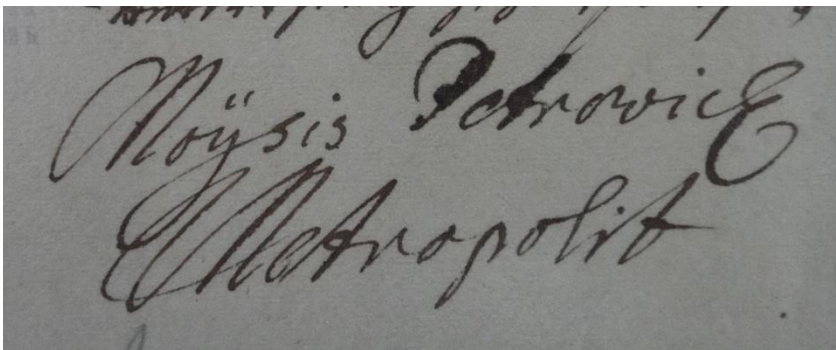 Moÿsis Petrowicz
Metropolit